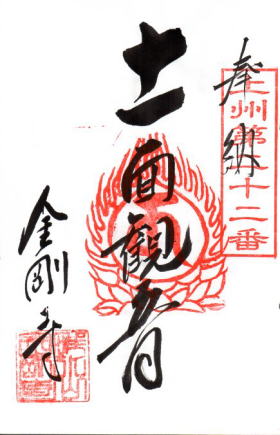 奉納
上州第二十二番
十一面観音
金剛寺